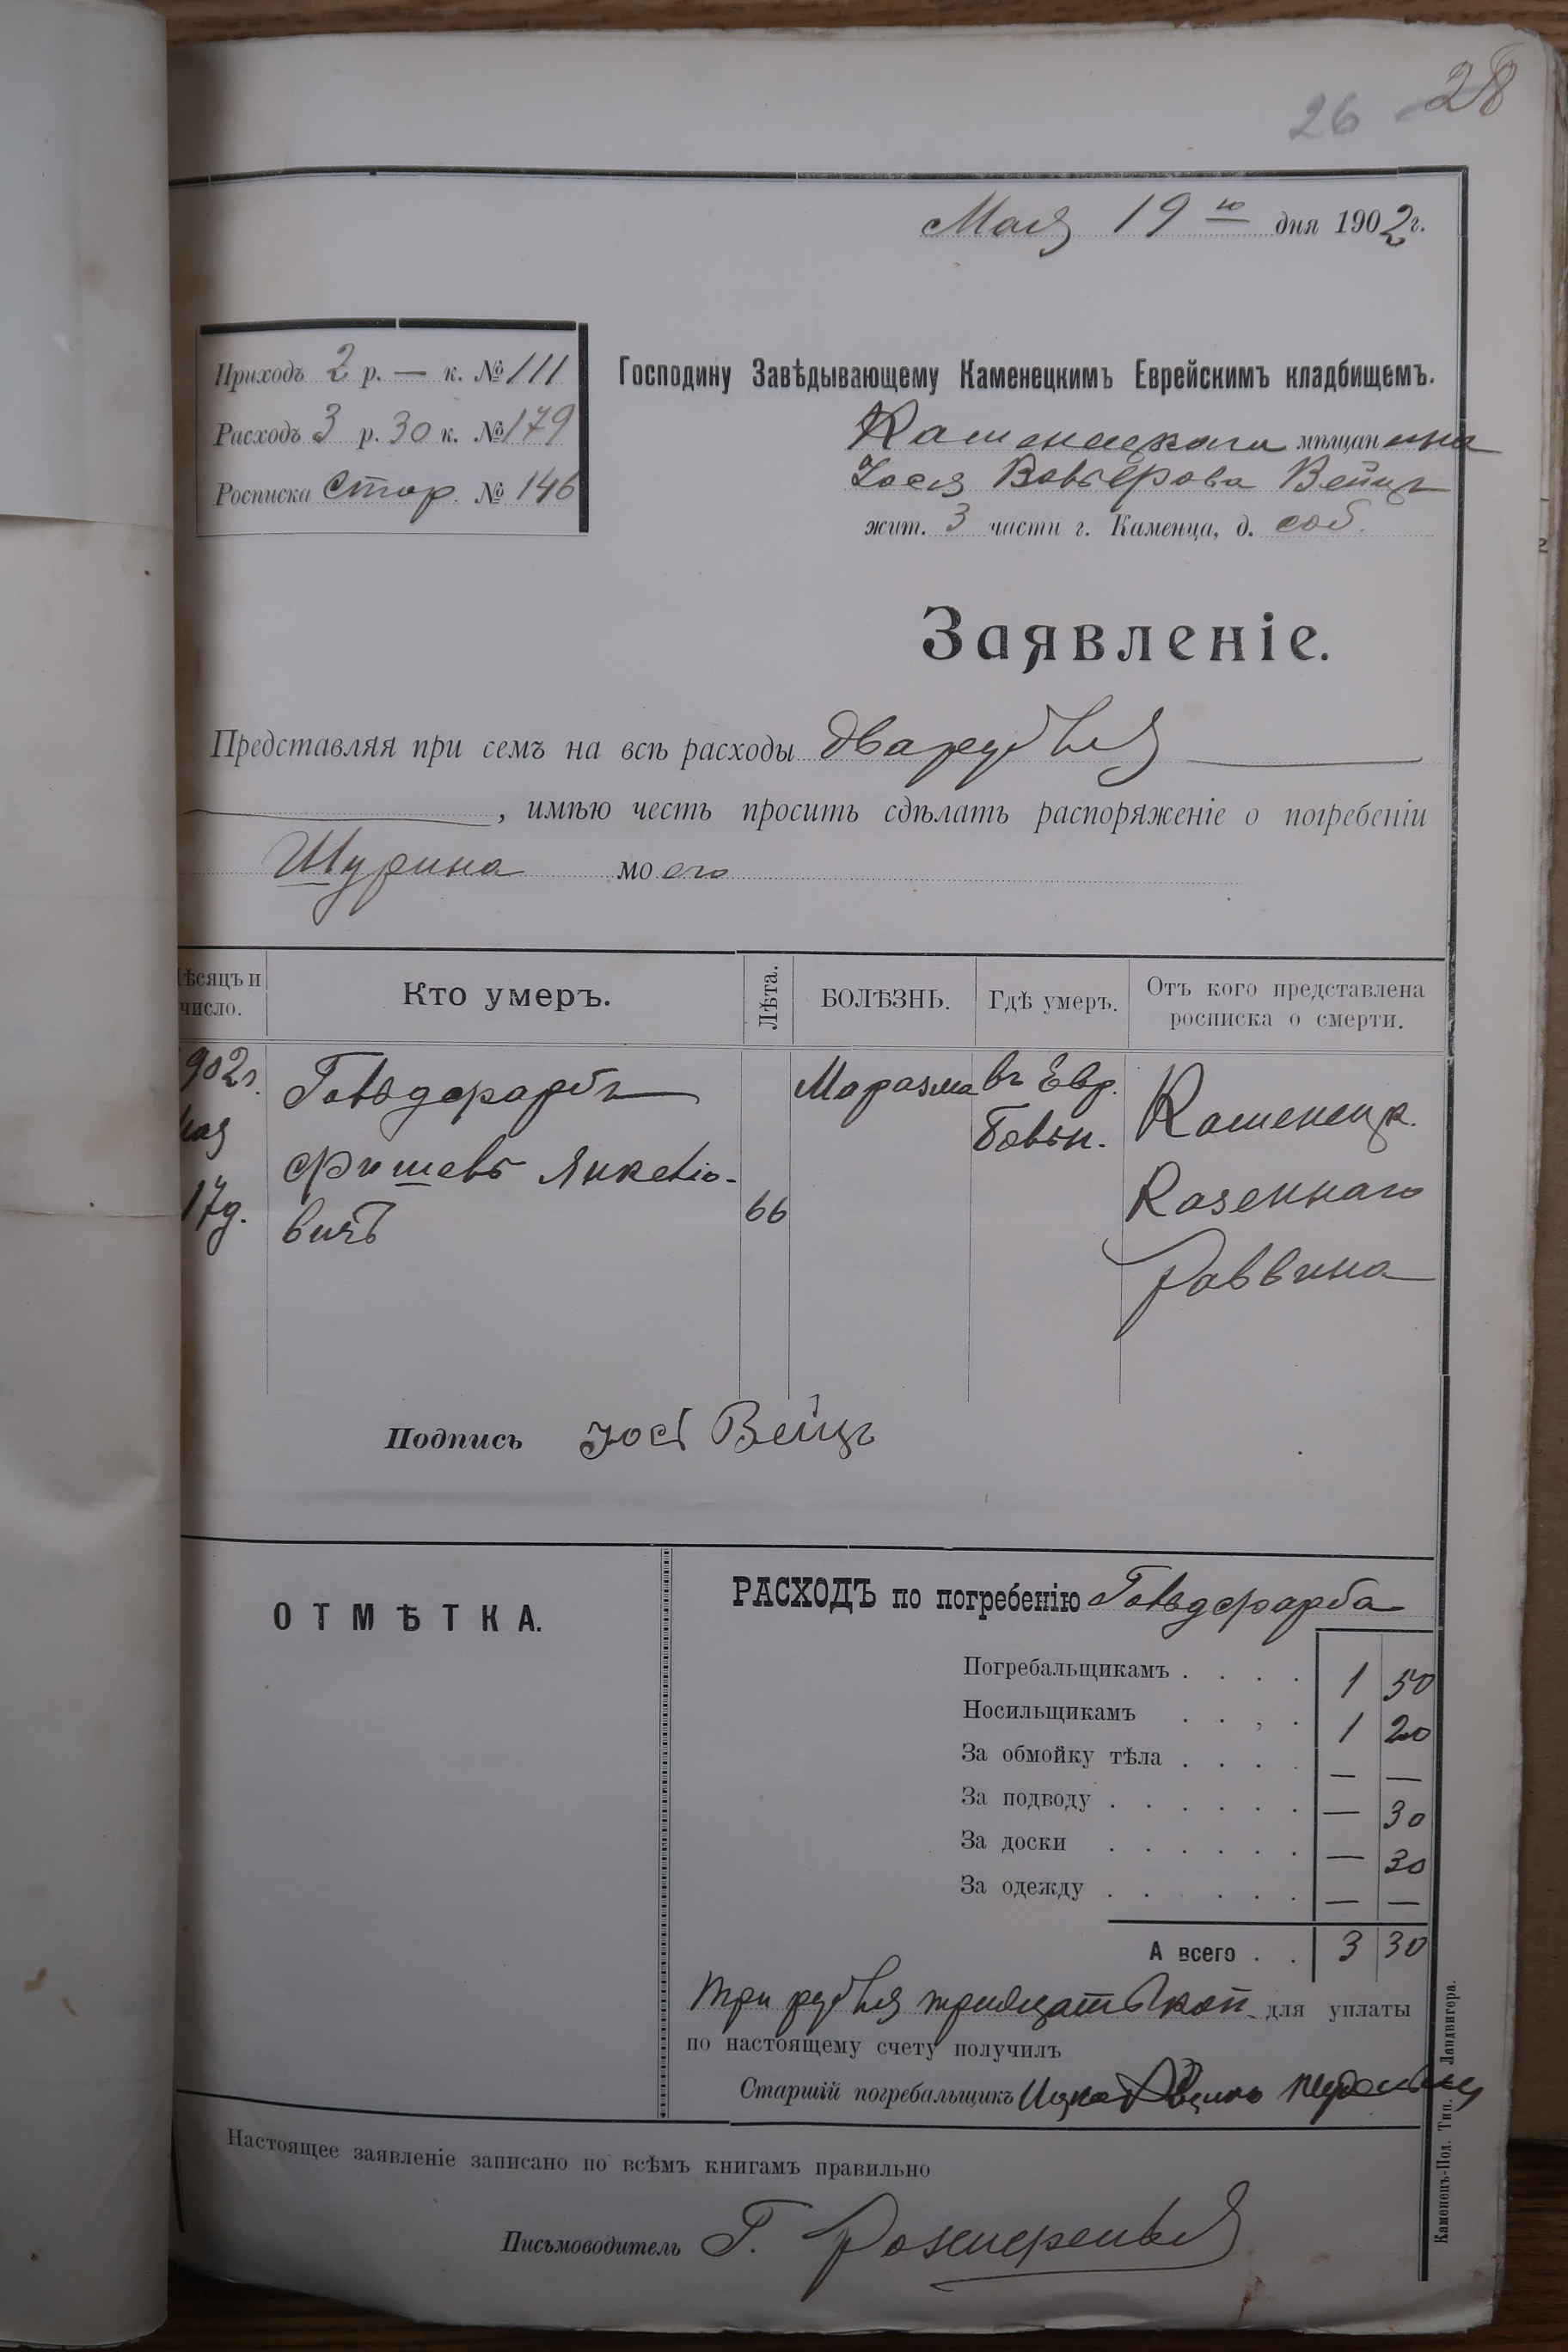 26 28
Мая 19 го дня 1902 г.
Приходъ 2 р. — к. № 111
Расходъ 3 р. 30 к. № 179
Росписка стор. № 146
Господину Завѣдывающему Каменецкимъ Еврейскимъ кладбищемъ.
Каменецкаго мѣщанина
Іося Вейцъ
жит. 3 части г. Каменца, д. соб.
Заявленіе.
Представляя при семъ на всѣ расходы два рубля
, имѣю честь просить сдѣлать распоряженіе о погребеніи
Шурина моего
Мѣсяцъ и число.
Кто умеръ.
Лѣта.
БОЛѢЗНЬ.
Гдѣ умеръ.
Отъ кого представлена росписка о смерти.
1902 г.
Мая
17 д.
Гольдфарбъ
Фишель Янкеліо-
вичъ
66
Маразма
въ Евр.
больн.
Каменецк.
Казеннаго
раввина
Подпись Іось Вейцъ
ОТМѢТКА.
РАСХОДЪ по погребенію Гольдфарба
Погребальщикамъ . . . . 1 50
Носильщикамъ . . , . 1 20
За обмойку тѣла . . . . — —
За подводу . . . . . . — 30
За доски . . . . . . — 30
За одежду . . . . . . — —
А всего . . 3 30
Три рубля тридцать коп. для уплаты
по настоящему счету получилъ
Старшій погребальщикъ Ицко
Настоящее заявленіе записано по всѣмъ книгамъ правильно
Письмоводитель Г.
Каменецъ-Под. Тип. Ландвигера.